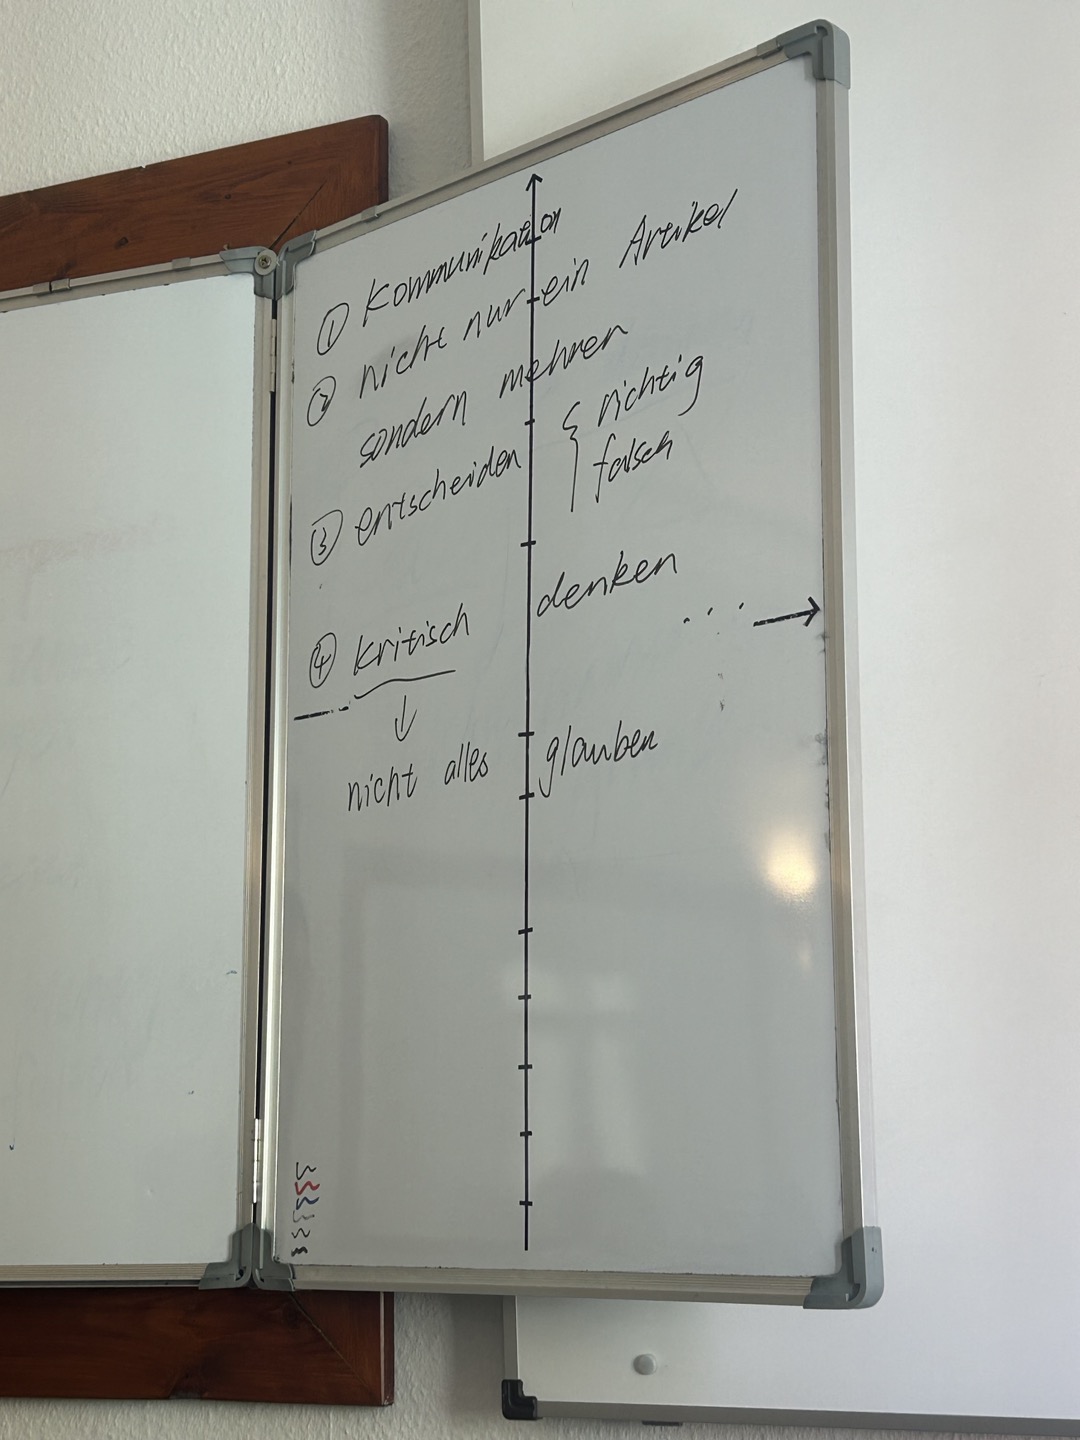 ① Kommunikation
② nicht nur ein Artikel
sondern mehren
③ entscheiden { richtig
falsch
④ kritisch denken
↓
nicht alles glauben